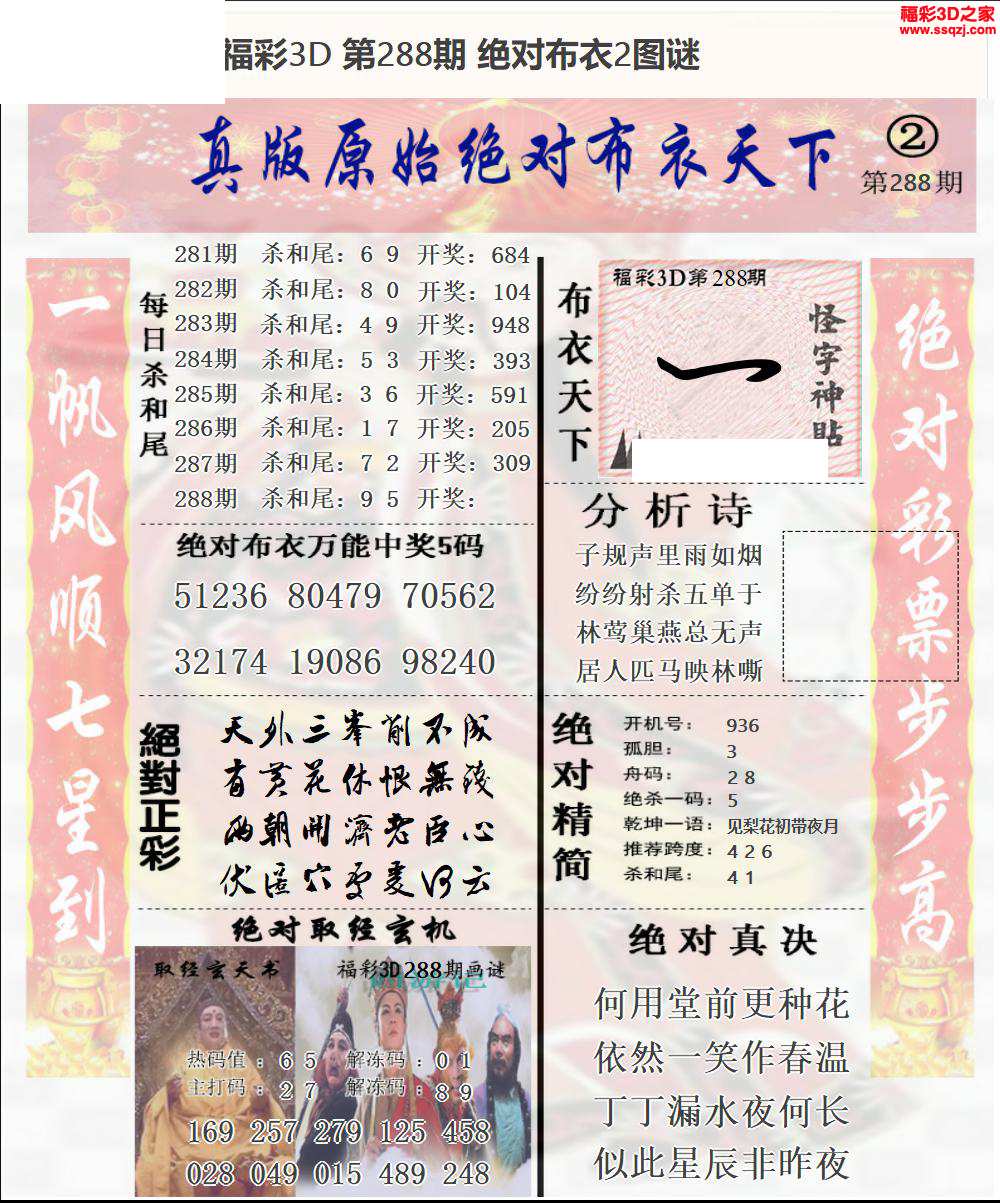 福彩3D之家
www.ssqzj.com
福彩3D 第288期 绝对布衣2图谜
真版原始绝对布衣天下
②
第288期
一帆风顺七星到
每日杀和尾
281期 杀和尾：6 9 开奖：684
282期 杀和尾：8 0 开奖：104
283期 杀和尾：4 9 开奖：948
284期 杀和尾：5 3 开奖：393
285期 杀和尾：3 6 开奖：591
286期 杀和尾：1 7 开奖：205
287期 杀和尾：7 2 开奖：309
288期 杀和尾：9 5 开奖：
绝对布衣万能中奖5码
51236 80479 70562
32174 19086 98240
絕對正彩
天外三峯削不成
有黄花休恨無
两朝開濟老臣心
伏
绝对取经玄机
取经玄天书
福彩3D288期画谜
热码值：6 5 解冻码：0 1
主打码：2 7 解冻码：8 9
169 257 279 125 458
028 049 015 489 248
布衣天下
福彩3D第288期
一
怪字神貼
分析诗
子规声里雨如烟
纷纷射杀五单于
林莺巢燕总无声
居人匹马映林嘶
绝对精简
开机号：936
孤胆：3
舟码：2 8
绝杀一码：5
乾坤一语：见梨花初带夜月
推荐跨度：4 2 6
杀和尾：4 1
绝对真决
何用堂前更种花
依然一笑作春温
丁丁漏水夜何长
似此星辰非昨夜
绝对彩票步步高